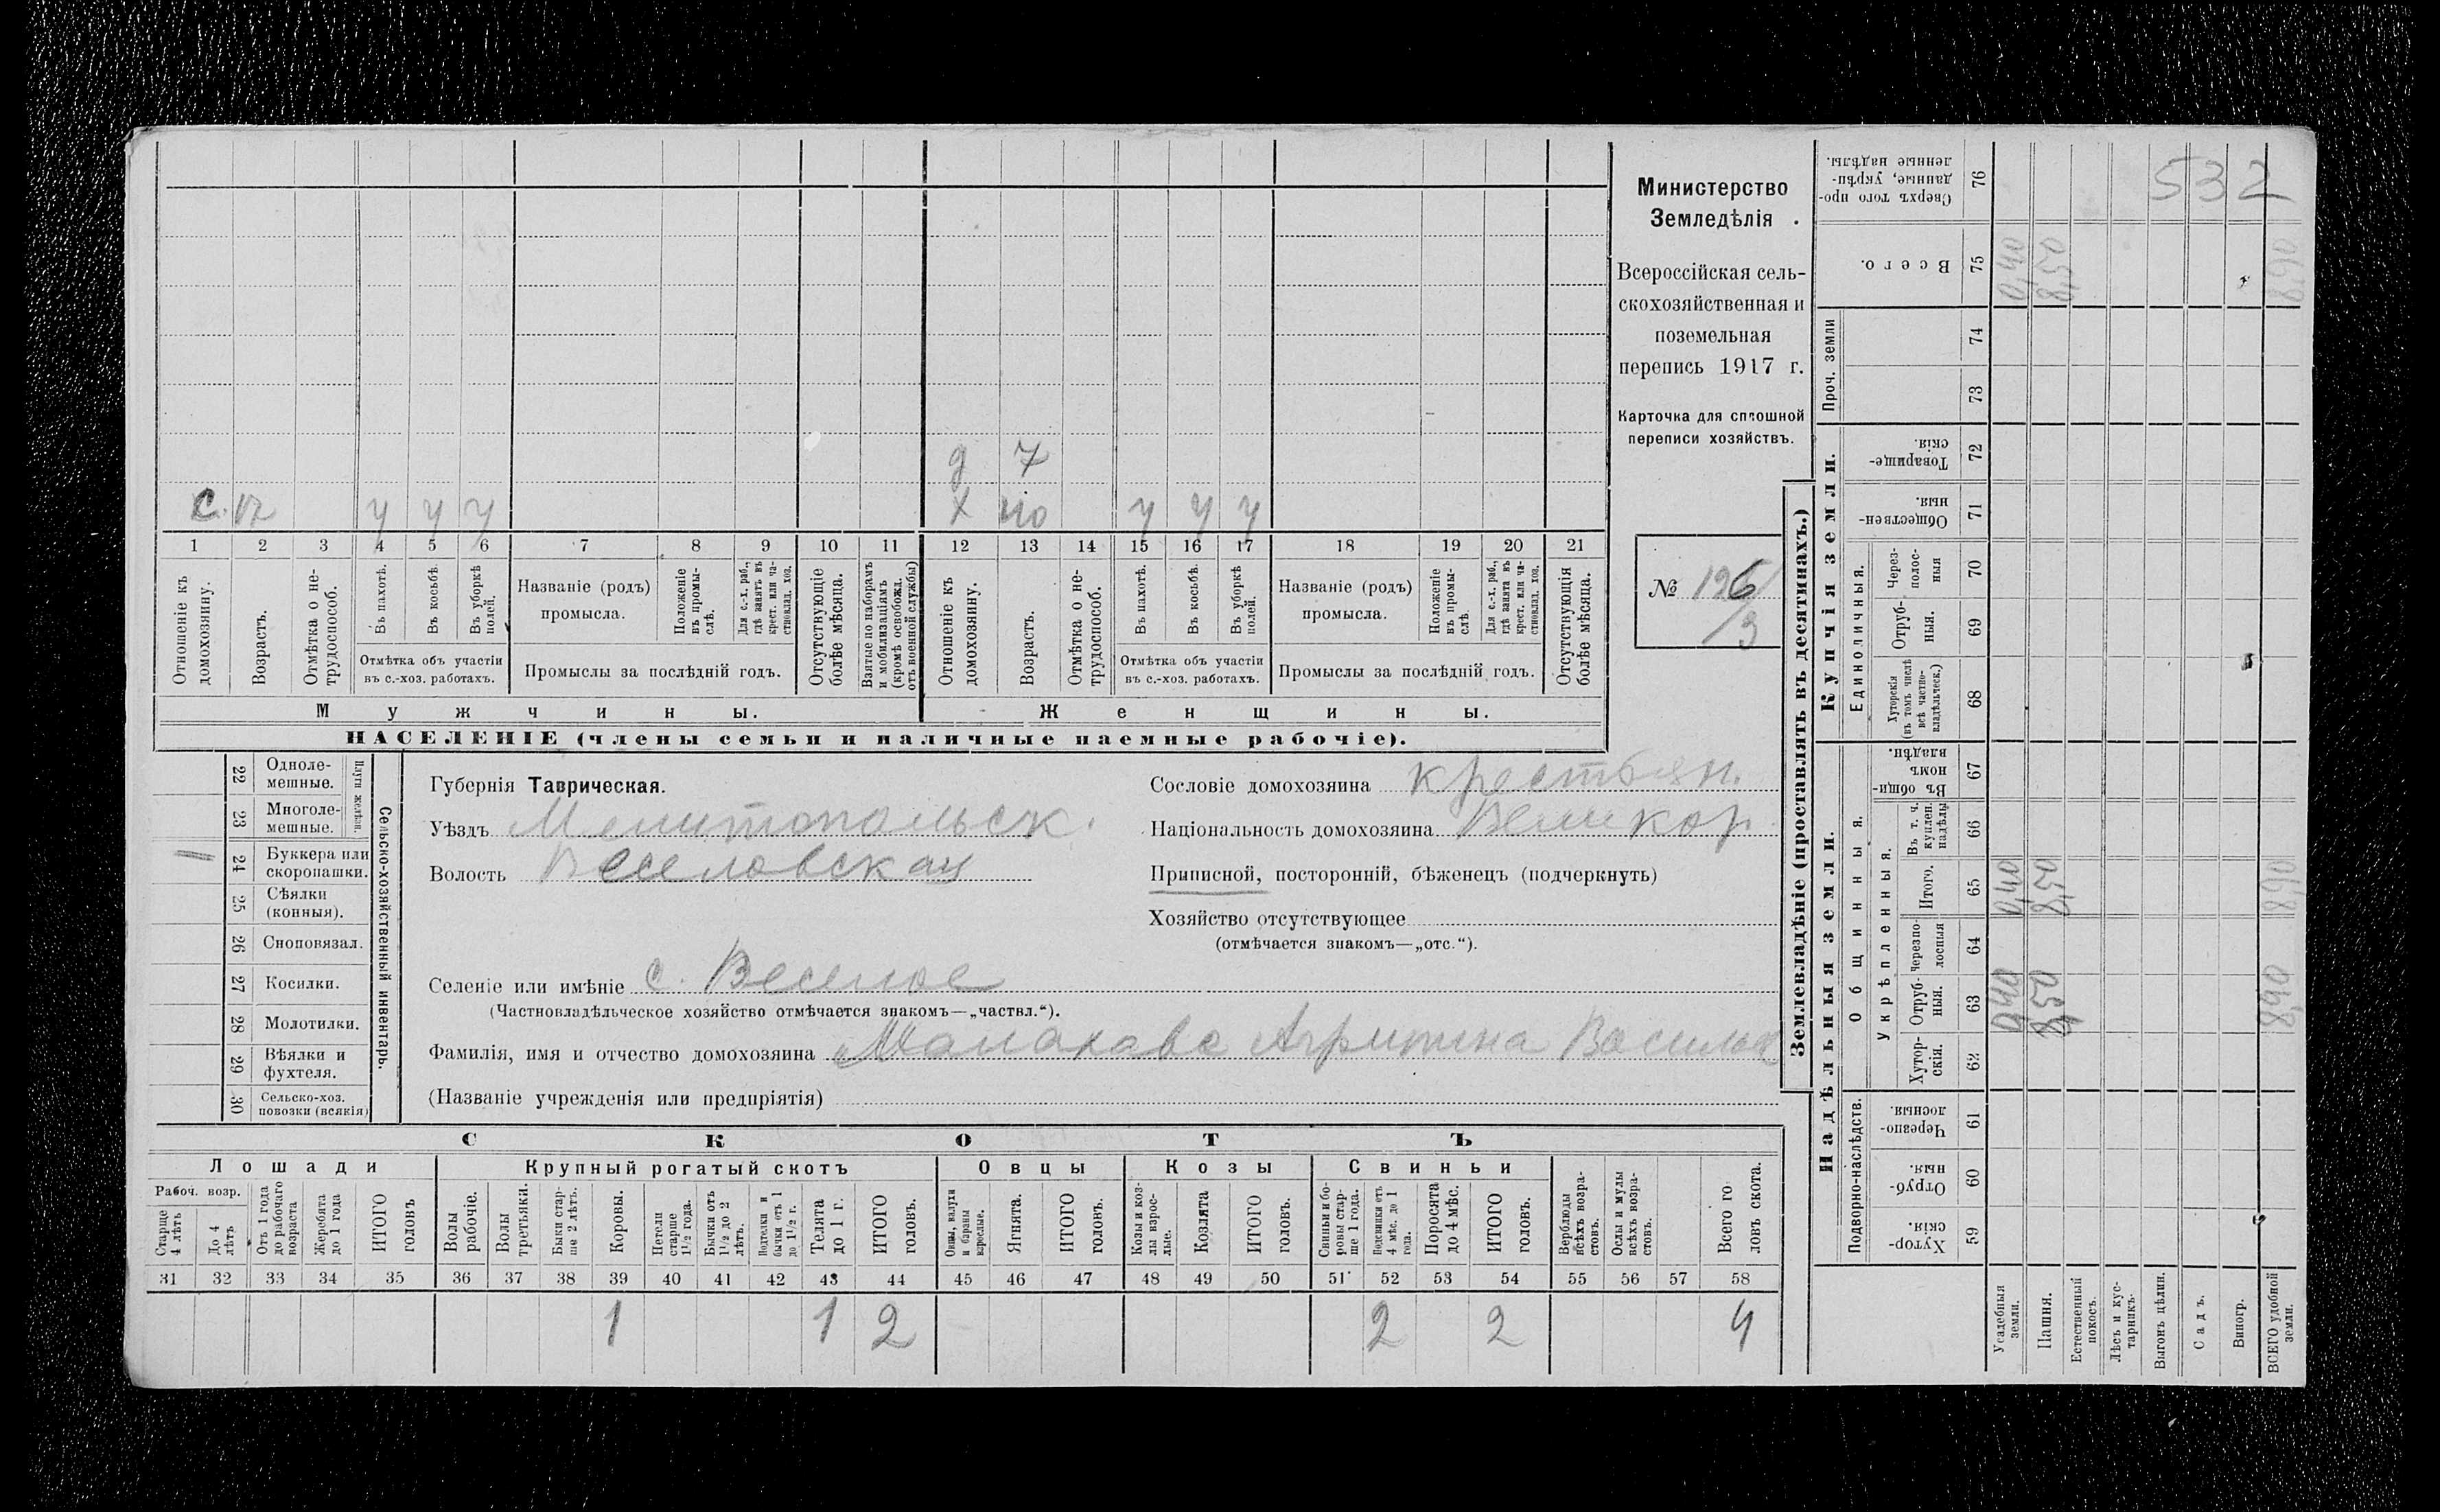 Министерство
Земледѣлія .
Всероссійская сель-
скохозяйственная и
поземельная
перепись 1917 г.
Карточка для сплошной
переписи хозяйствъ.
№ 126
/3
532
д 7
с. 12 у у у
х 40 у у у
1 2 3 4 5 6 7 8 9 10 11 12 13 14 15 16 17 18 19 20 21
Отношеніе къ домохозяину.
Возрастъ.
Отмѣтка о не-трудоспособ.
Въ пахотѣ.
Въ косьбѣ.
Въ уборкѣ полей.
Отмѣтка объ участіи въ с.-хоз. работахъ.
Названіе (родъ) промысла.
Положеніе въ промы-слѣ.
Для с.-х. раб., гдѣ занятъ въ крест. или ча-стновлад. хоз.
Промыслы за послѣдній годъ.
Отсутствующіе болѣе мѣсяца.
Взятые по наборамъ и мобилизаціямъ (кромѣ освобожд. отъ военной службы)
Отношеніе къ домохозяину.
Возрастъ.
Отмѣтка о не-трудоспособ.
Въ пахотѣ.
Въ косьбѣ.
Въ уборкѣ полей.
Отмѣтка объ участіи въ с.-хоз. работахъ.
Названіе (родъ) промысла.
Положеніе въ промы-слѣ.
Для с.-х. раб., гдѣ занята въ крест. или ча-стновлад. хоз.
Промыслы за послѣдній годъ.
Отсутствующія болѣе мѣсяца.
Мужчины.
Женщины.
НАСЕЛЕНІЕ (члены семьи и наличные наемные рабочіе).
Сельско-хозяйственный инвентарь.
Плуги желѣзн.
22 Одноле-мешные.
23 Многоле-мешные.
24 Буккера или скоропашки.
25 Сѣялки (конныя).
26 Сноповязал.
27 Косилки.
28 Молотилки.
29 Вѣялки и фухтеля.
30 Сельско-хоз. повозки (всякія)
Губернія Таврическая.
Уѣздъ Мелитопольск.
Волость Веселовская
Сословіе домохозяина крестьян.
Національность домохозяина Великор.
Приписной, посторонній, бѣженецъ (подчеркнуть)
Хозяйство отсутствующее
(отмѣчается знакомъ—„отс.“).
Селеніе или имѣніе с. Веселое
(Частновладѣльческое хозяйство отмѣчается знакомъ—„частвл.“).
Фамилія, имя и отчество домохозяина Малахава
(Названіе учрежденія или предпріятія)
СКОТЪ
Лошади
Крупный рогатый скотъ
Овцы
Козы
Свиньи
Рабоч. возр.
Старще 4 лѣтъ
До 4 лѣтъ
Отъ 1 года до рабочаго возраста
Жеребята до 1 года
ИТОГО головъ
Волы рабочіе.
Волы третьяки.
Быки стар-ше 2 лѣтъ.
Коровы.
Петели старше 1½ года.
Бычки отъ 1½ до 2 лѣтъ.
Подтелки и бычки отъ 1 до 1½ г.
Телята до 1 г.
ИТОГО головъ.
Овцы, валухи и бараны взрослые.
Ягнята.
ИТОГО головъ.
Козы и коз-лы взрос-лые.
Козлята
ИТОГО головъ.
Свиньи и бо-ровы стар-ше 1 года.
Подсвинки отъ 4 мѣс. до 1 года.
Поросята до 4 мѣс.
ИТОГО головъ.
Верблюды всѣхъ возра-стовъ.
Ослы и мулы всѣхъ возра-стовъ.
Всего го ловъ скота.
31 32 33 34 35 36 37 38 39 40 41 42 43 44 45 46 47 48 49 50 51 52 53 54 55 56 57 58
1 1 2 2 2 4
Землевладѣніе (проставлять въ десятинахъ.)
Надѣльныя земли.
Купчія земли.
Проч. земли
Подворно-наслѣдств.
Общинныя.
Укрѣпленныя.
Единоличныя.
59 Хутор-скія.
60 Отруб-ныя.
61 Черезпо-лосныя.
62 Хутор-скія.
63 Отруб-ныя. 0,40 8,50 8,90
64 Черезпо-лосныя
65 Итого. 0,40 8,50 8,90
66 Въ т. ч. куплен. надѣлы
67 Въ общи-номъ владѣн.
68 Хуторскія (въ томъ числѣ всѣ частно-владѣльческ.)
69 Отруб-ныя.
70 Через-полос-ныя
71 Обществен-ныя
72 Товарище-скія.
73
74
75 Всего. 0,40 8,50 8,90
76 Сверхъ того про-данные, укрѣп-ленные надѣлы.
Усадебныя земли.
Пашня.
Естественный покосъ.
Лѣсъ и кус-тарникъ.
Выгонъ цѣлин.
Садъ.
Виногр.
ВСЕГО удобной земли.